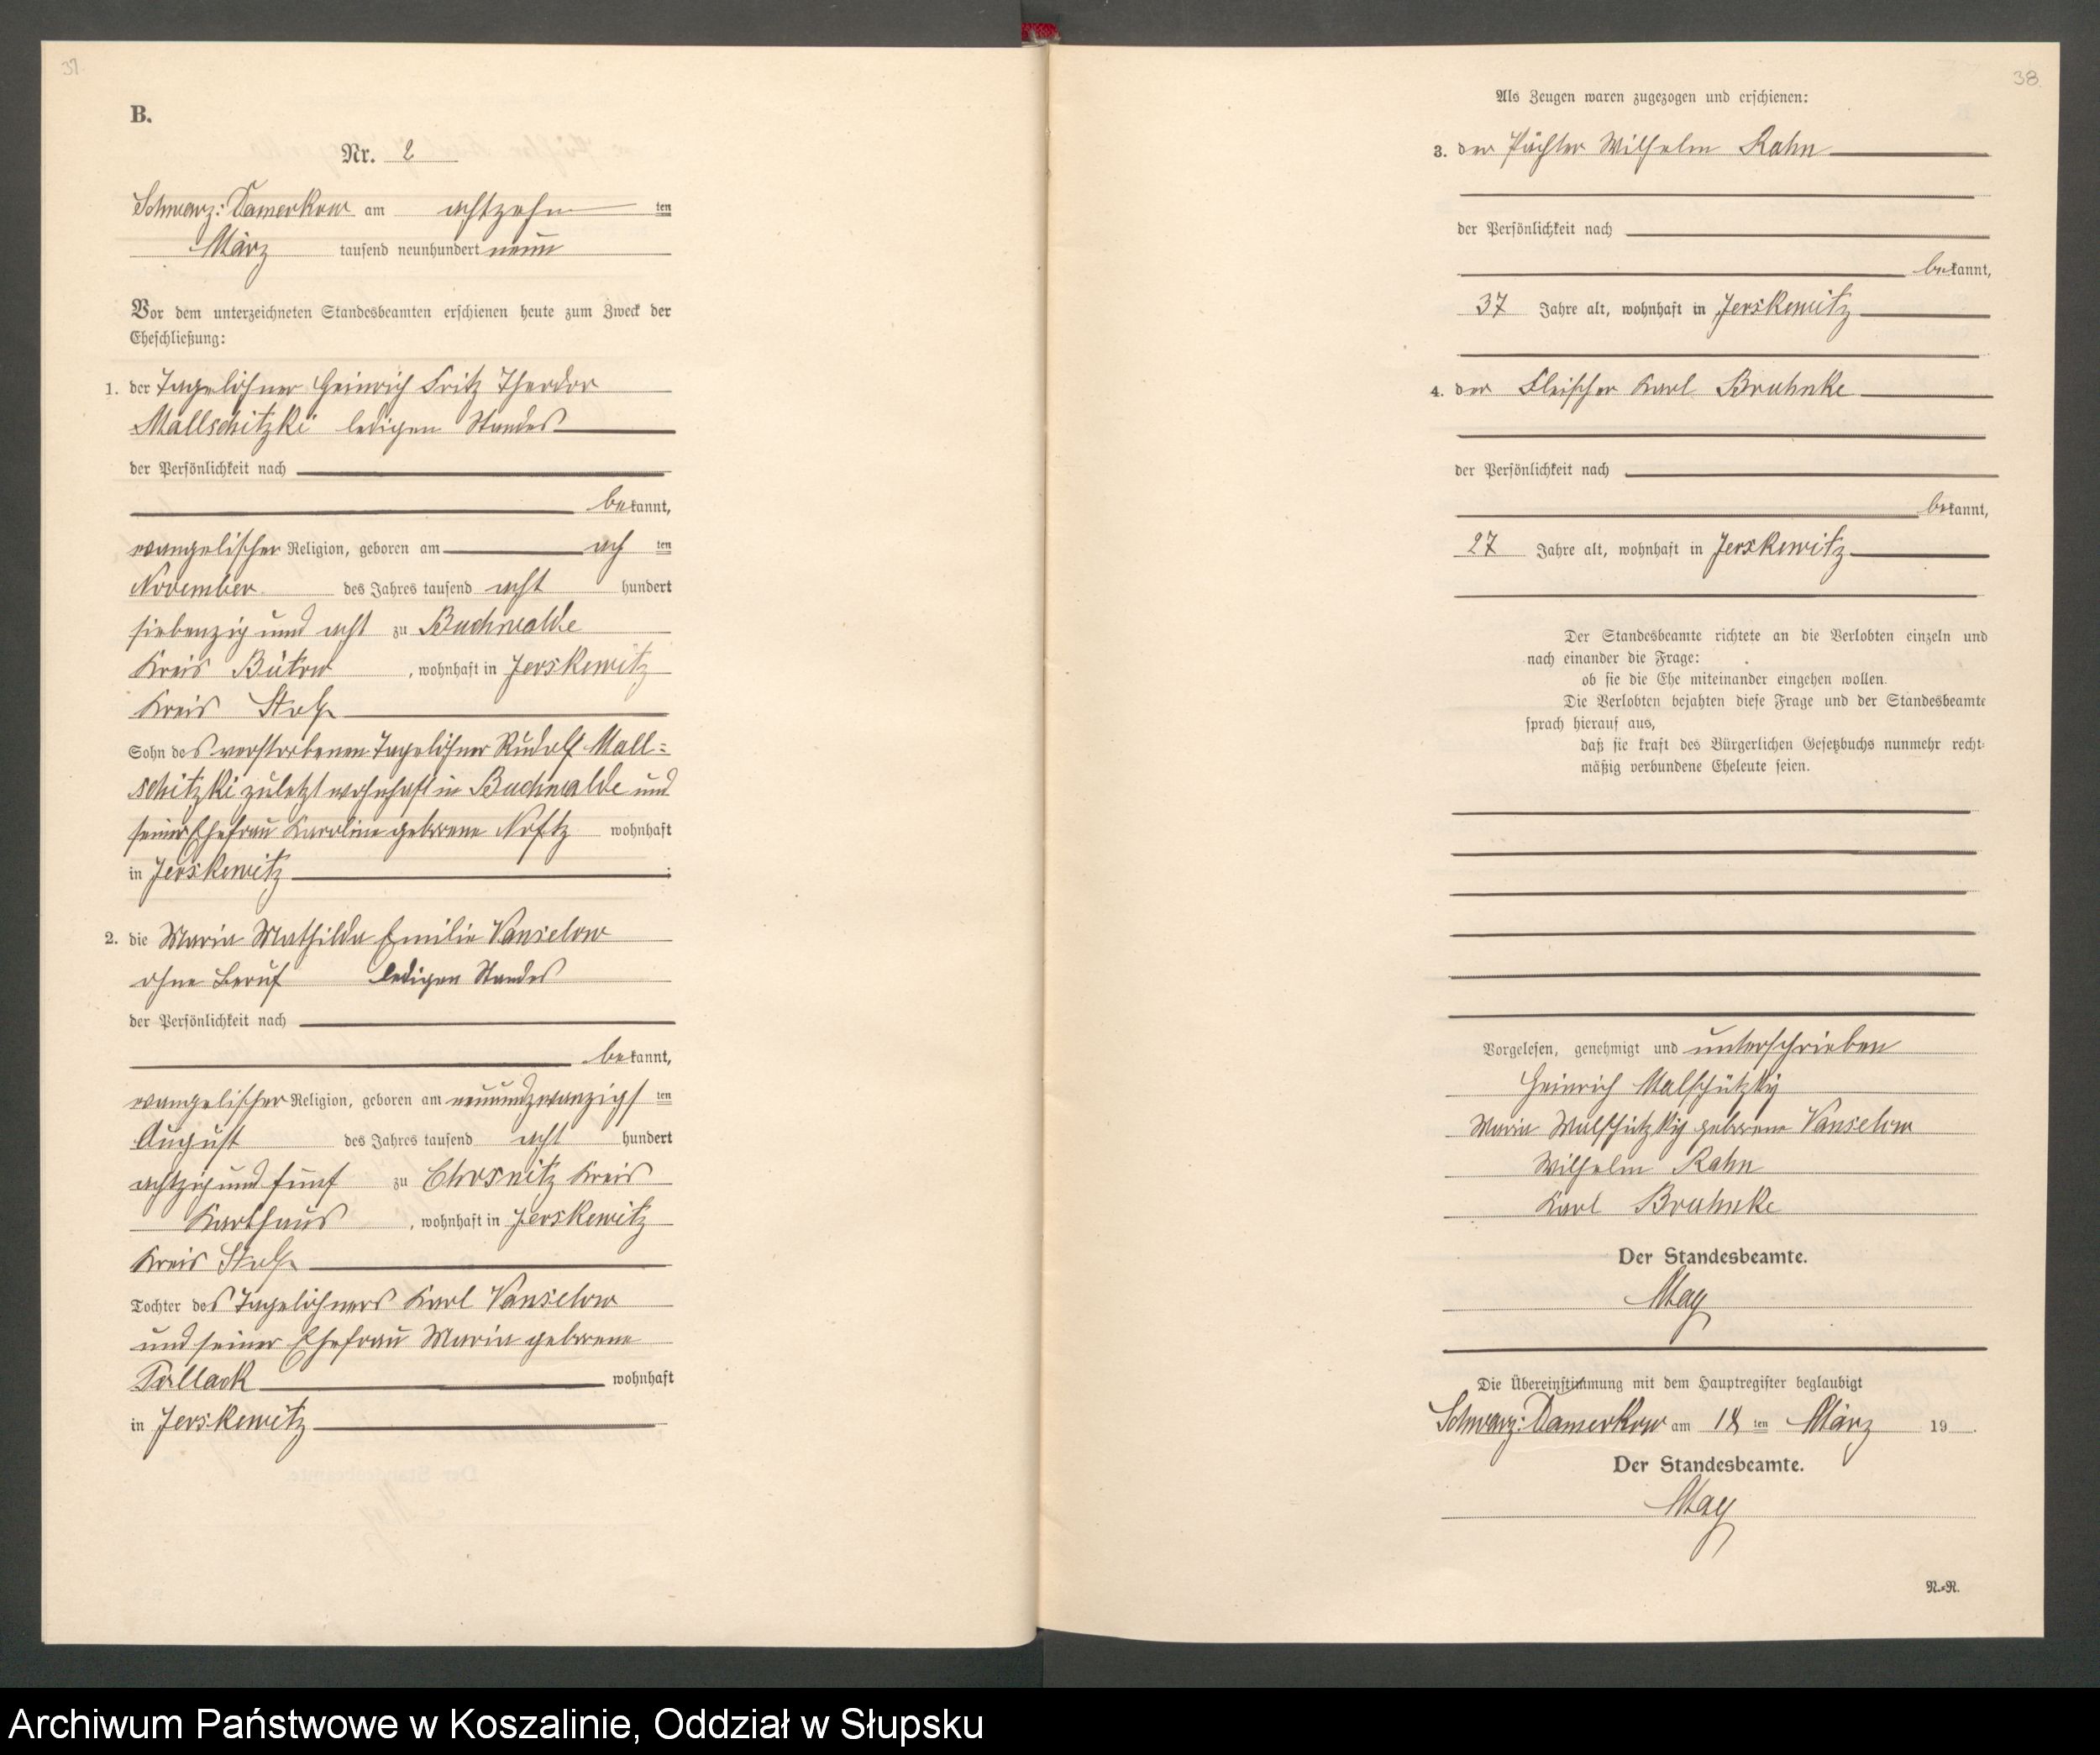 37.
B.
Nr. 2
Schwarz: Damerkow am achtzehn ten
März tausend neunhundert neun
Vor dem unterzeichneten Standesbeamten erschienen heute zum Zweck der
Eheschließung:
1. der Tagelöhner Heinrich Fritz Theodor
Mallschitzki ledigen Standes
der Persönlichkeit nach
bekannt,
evangelischer Religion, geboren am ach ten
November des Jahres tausend acht hundert
siebenzig und acht zu Buchwalde
Kreis Bütow, wohnhaft in Jerskewitz
Kreis Stolp
Sohn des verstorbenen Tagelöhner Rudolf Mall=
schitzki zuletzt wohnhaft in Buchwalde und
seiner Ehefrau Karoline geborene Noftz wohnhaft
in Jerskewitz.
2. die Maria Mathilda Emilie Vanselow
ohne Beruf ledigen Standes
der Persönlichkeit nach
bekannt,
evangelischer Religion, geboren am neunundzwanzigs ten
August des Jahres tausend acht hundert
achtzig und fünf zu Chosnitz Kreis
Karthaus, wohnhaft in Jerskewitz
Kreis Stolp
Tochter des Tagelöhners Karl Vanselow
und seiner Ehefrau Maria geborene
Pollack wohnhaft
in Jerskewitz
38
Als Zeugen waren zugezogen und erschienen:
3. der Pächter Wilhelm Rahn
der Persönlichkeit nach
bekannt,
37 Jahre alt, wohnhaft in Jerskewitz
4. der Fleischer Karl Bruhnke
der Persönlichkeit nach
bekannt,
27 Jahre alt, wohnhaft in Jerskewitz
Der Standesbeamte richtete an die Verlobten einzeln und
nach einander die Frage:
ob sie die Ehe miteinander eingehen wollen.
Die Verlobten bejahten diese Frage und der Standesbeamte
sprach hierauf aus,
daß sie kraft des Bürgerlichen Gesetzbuchs nunmehr recht=
mäßig verbundene Eheleute seien.
Vorgelesen, genehmigt und unterschrieben
Heinrich Malschützky
Maria Malschützky geborene Vanselow
Wilhelm Rahn
Karl Bruhnke
Der Standesbeamte.
May
Die Übereinstimmung mit dem Hauptregister beglaubigt
Schwarz: Damerkow am 18 ten März 19 .
Der Standesbeamte.
May
N.=N.
Archiwum Państwowe w Koszalinie, Oddział w Słupsku